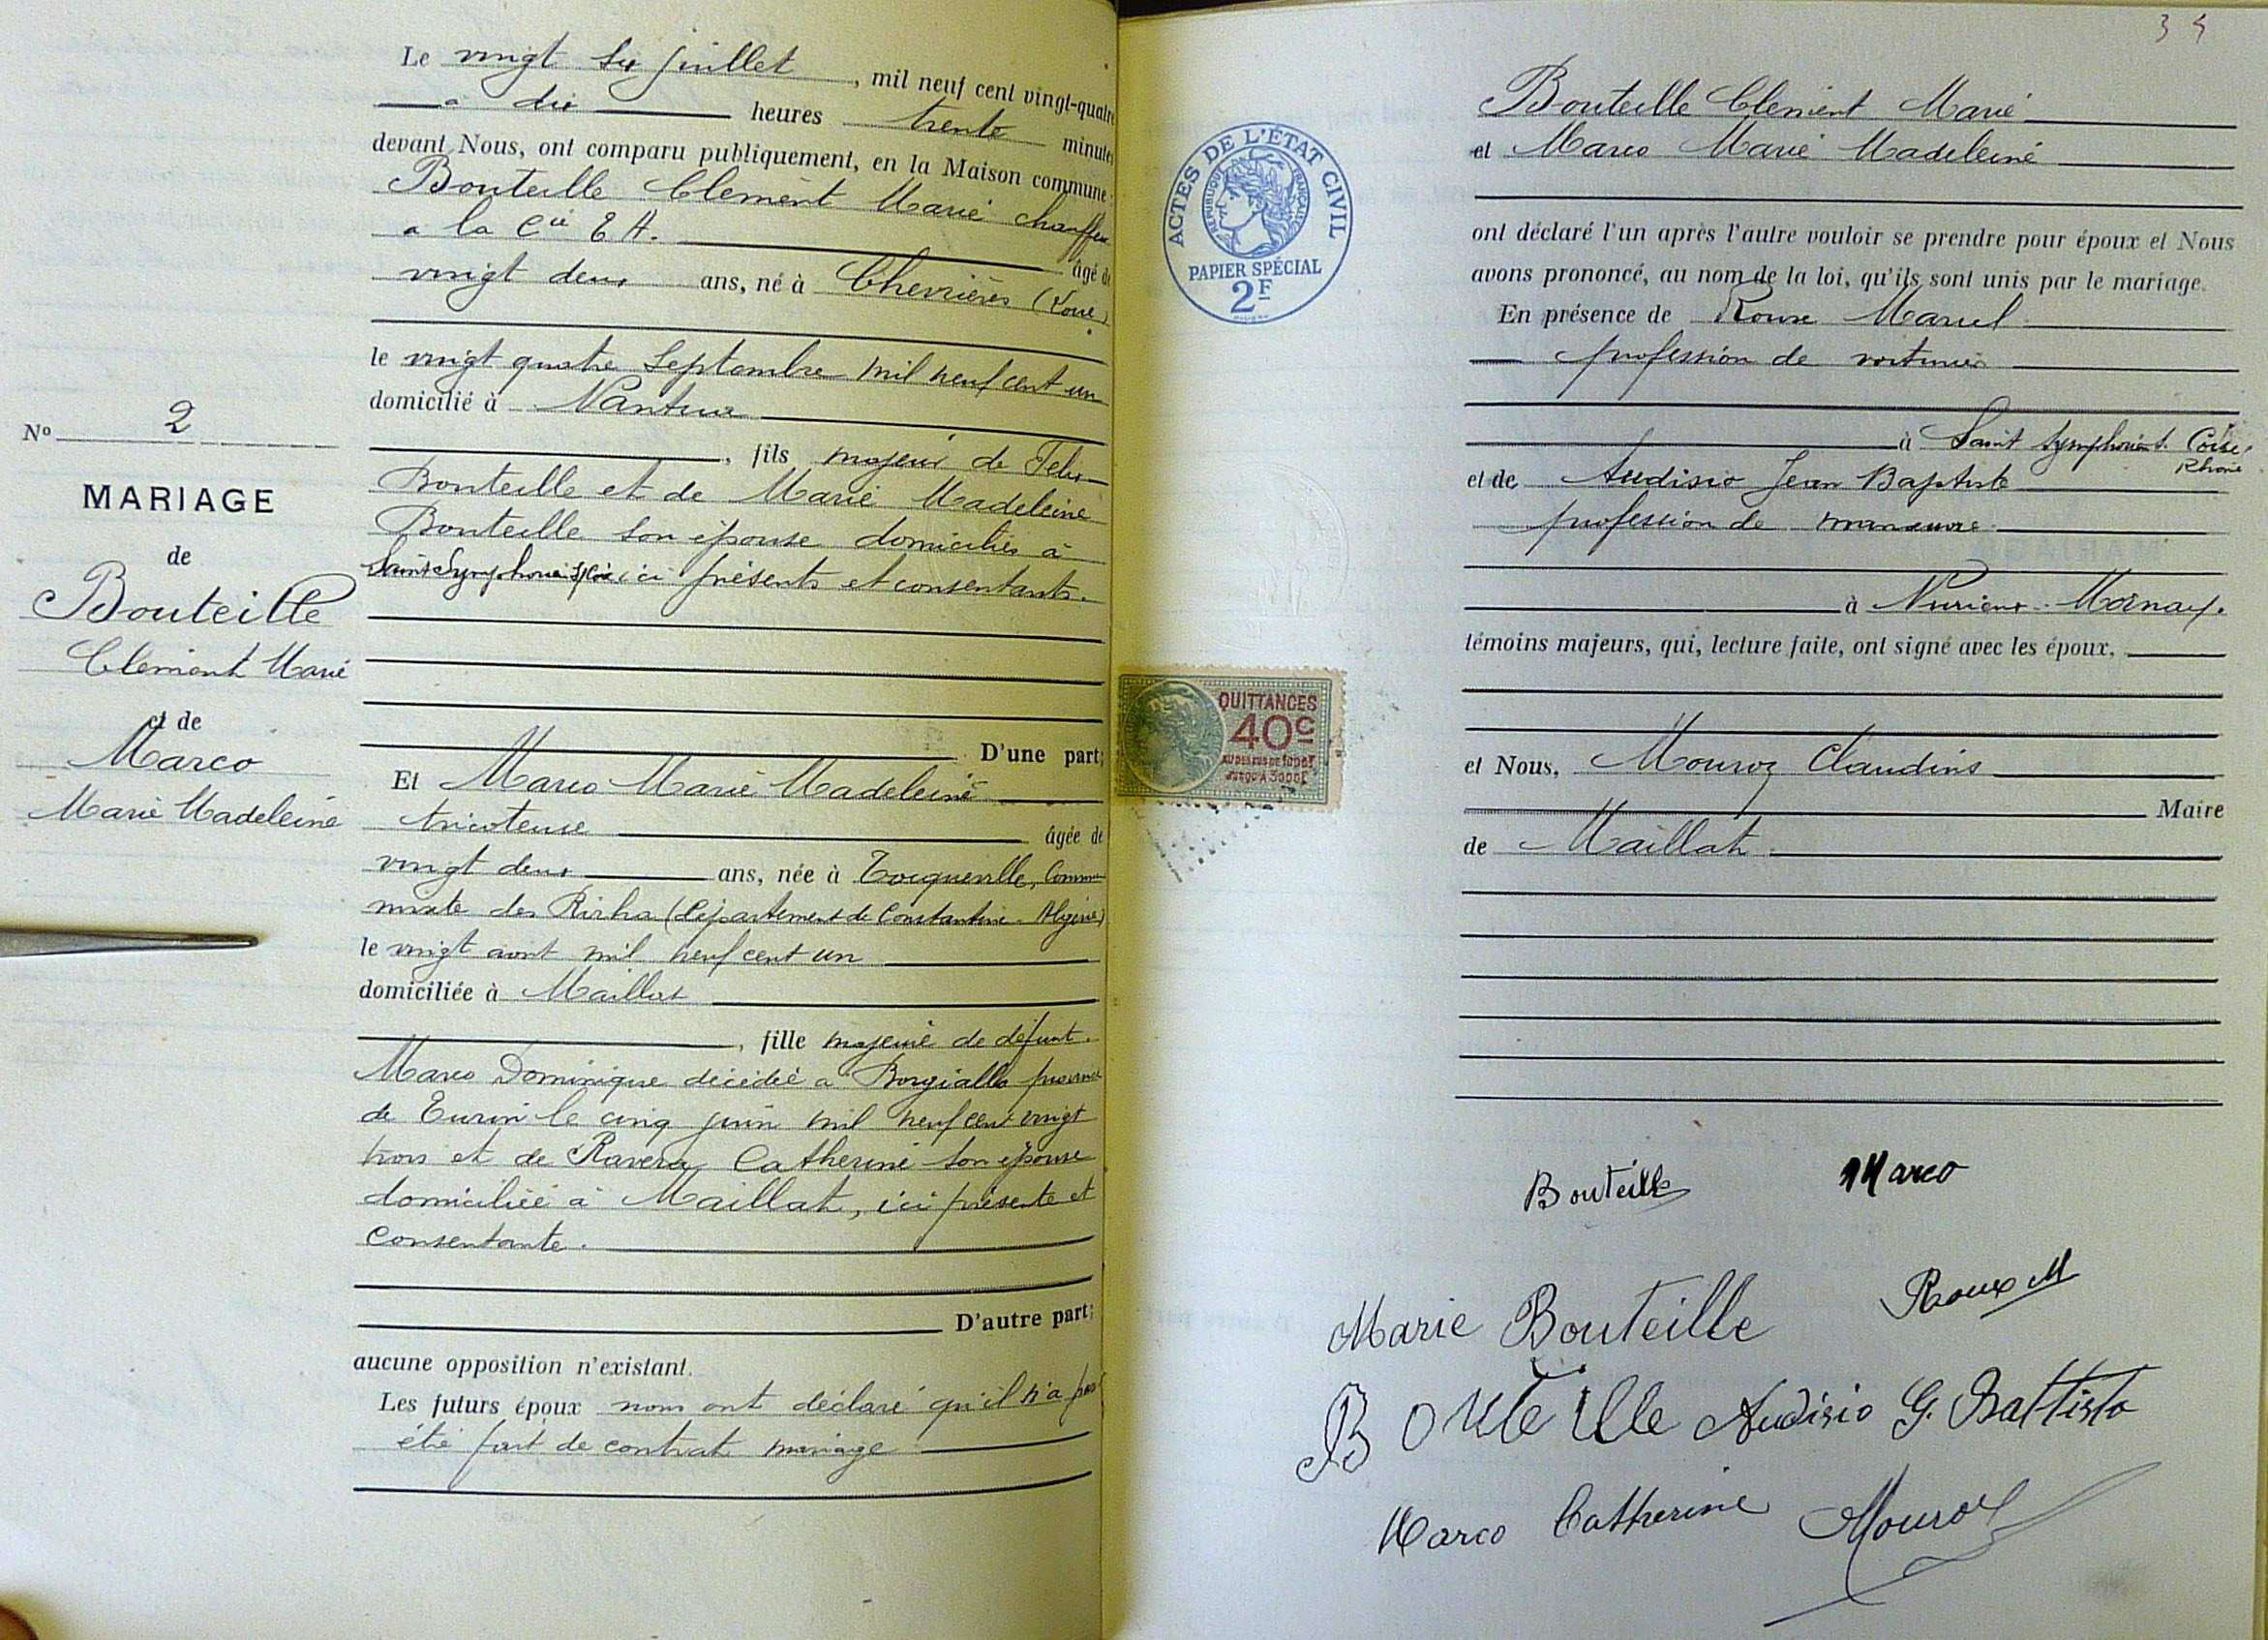 Le vingt six juillet, mil neuf cent vingt-quatre
a dix heures trente minutes
devant Nous, ont comparu publiquement, en la Maison commune:
Bouteille Clement Marie chauffeur
a la Cie E H.
âgé de
vingt deux ans, né à Chevrières (Loire)
le vingt quatre Septembre mil neuf cent un
domicilié à Nantua
, fils majeur de Felix
Bouteille et de Marie Madeleine
Bouteille son épouse domiciliés à
Saint Symphorien s/Coise ici présents et consentants.
D'une part;
Nº 2
MARIAGE
de
Bouteille
Clement Marie
et de
Marco
Marie Madeleine
Et Marco Marie Madeleine
tricoteuse âgée de
vingt deux ans, née à Tocqueville, Commune
mixte des Rirha (département de Constantine - Algérie)
le vingt aout mil neuf cent un
domiciliée à Maillat
, fille majeure de défunt
Marco Dominique décédé a Borgiallo province
de Turin le cinq juin mil neuf cent vingt
trois et de Ravera Catherine son épouse
domiciliée à Maillat, ici présente et
consentante.
D'autre part;
aucune opposition n'existant.
Les futurs époux nous ont déclaré qu'il n'a pas
été fait de contrat mariage
34
ACTES DE L'ÉTAT CIVIL
RÉPUBLIQUE FRANÇAISE
PAPIER SPÉCIAL
2F
Bouteille Clement Marie
et Marco Marie Madeleine
ont déclaré l'un après l'autre vouloir se prendre pour époux et Nous
avons prononcé, au nom de la loi, qu'ils sont unis par le mariage.
En présence de Roux Marcel
profession de voiturier
à Saint Symphorien s. Coise
Rhône
et de Audisio Jean Baptiste
profession de manœuvre
à Nurieux-Mornay.
témoins majeurs, qui, lecture faite, ont signé avec les époux,
QUITTANCES
40c
AU DESSUS DE 1000F
JUSQU'À 3000F
et Nous, Mouroz Claudius
Maire
de Maillat
Bouteille Marco
Marie Bouteille Roux M
Bouteille Audisio G. Battista
Marco Catherine Mouroz